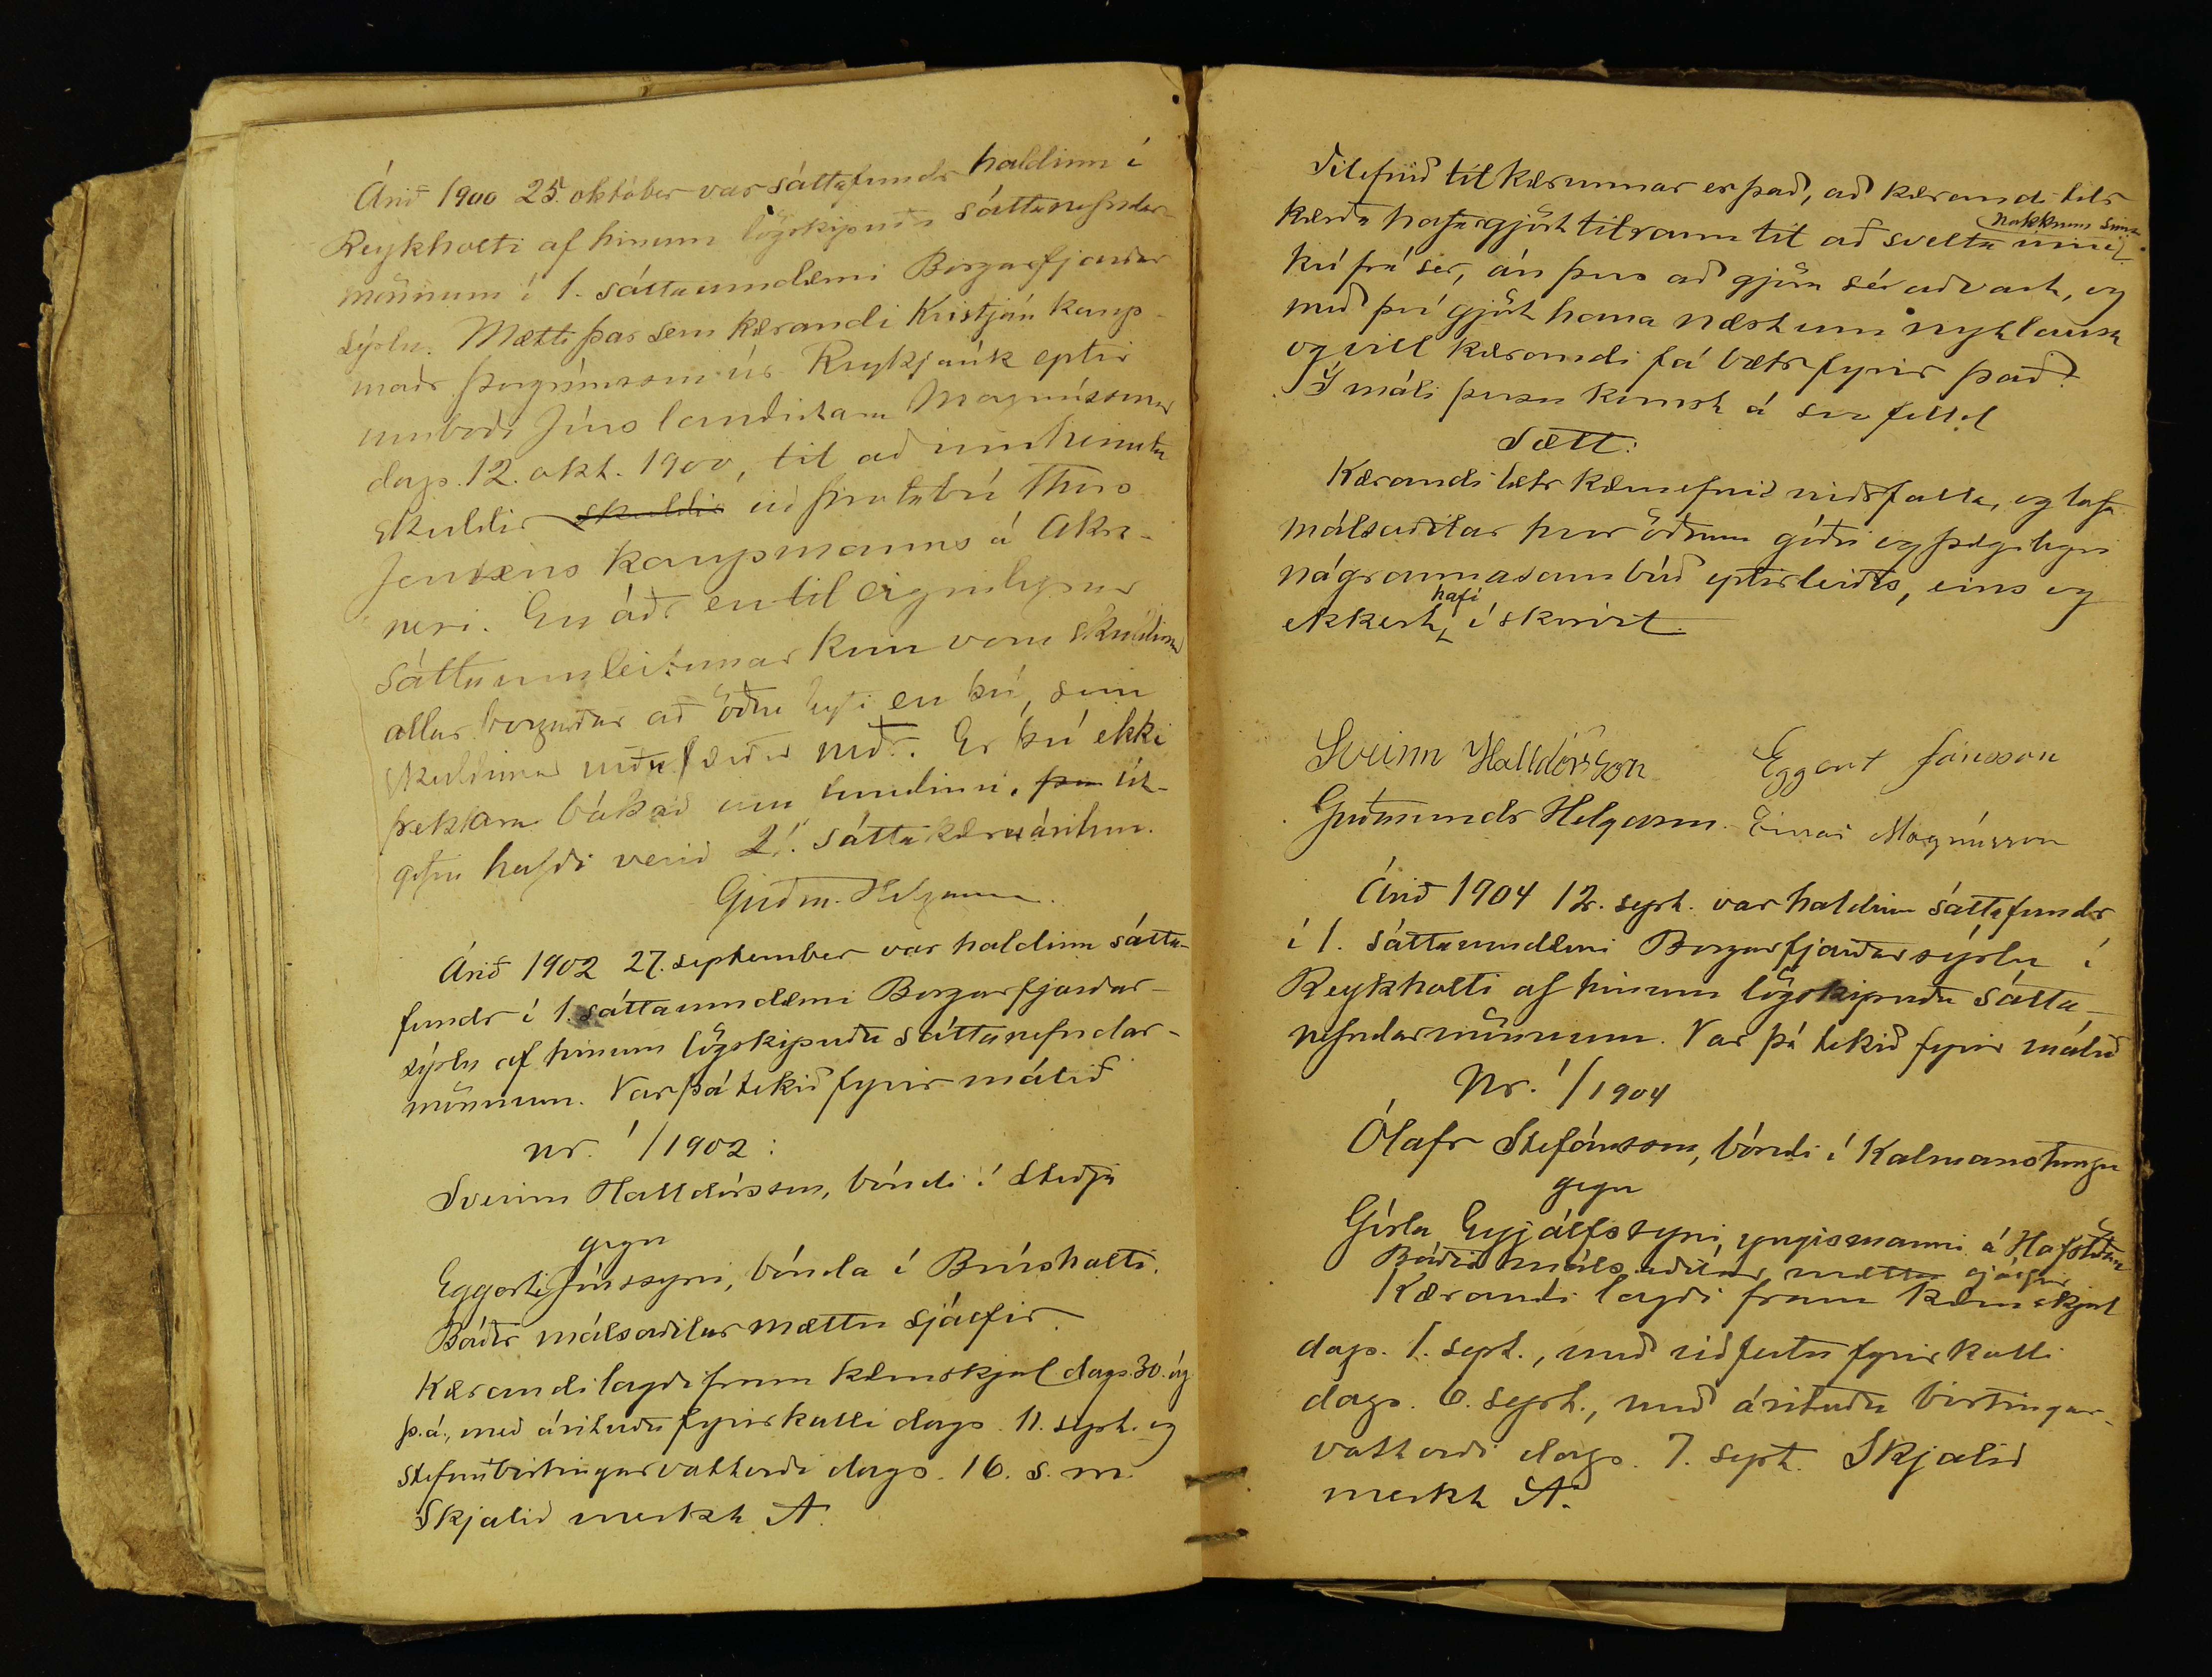 Árið 1900 25. október var sáttafundr haldinn í
Reykholti af hinum lögskipuðu sáttanefndar-
mönnum í 1. sáttaumdæmi Borgarfjarðar
sýslu. Mætti þar sem kærandi Kristján kaup-
maðr Þorgrímsson úr Reykjavík eptir
umboði Jóns landritara Magnússonar
dags. 12. okt. 1900, til að innheimta
skuldir skuldir við þrotabú Thors
Jensens kaupmanns á Akra-
nesi. En áðr en til eiginlegrar
sáttaumleitunar kom voru skuldirnar
allar borgaðar að öðru leyti en því, sem
skuldirnar vóru færðar niðr. Er því ekki
frekkara bókað um fundinn, þar út-
gefin hafði verið 21 sáttakæruáritun.
Guðm. Helgason.
Árið 1902 27. september var haldinn sátta-
fundr í 1. sáttaumdæmi Borgarfjarðar-
sýslu af hinum lögskipuðu sáttanefndar-
mönnum. Var þá tekið fyrir málið
nr. 1/1902:
Sveinn Halldórsson, bóndi í Steðja
gegn
Eggerti Jónssyni, bónda í Brúsholti.
Báðir málsaðilar mættu sjálfir.
Kærandi lagði fram kæruskjal dags. 30. ág.
þ. á., með árituðu fyrirkalli dags. 11. sept. og
stefnubirtingarvottorði dags. 16. s. m.
Skjalið merkt A.
Tilefnið til kærunnar er það, að kærandi telr
kærða hafa gjört tilraun til að svelta inni nokkrum sinn.
kú frá sér, án þess að gjöra sér aðvart, og
með því gjört hana næstum nytlausa
og vill kærandi fá bætr fyrir það.
Í máli þessu komst á svo felld
Sætt:
Kærandi lætr kæruefnið niðrfalla, og lofa
málsaðilar hvor öðrum góðri og þægilegri
nágrannasambúð eptirleiðis, eins og
ekkert hafi í skorist.
Sveinn Halldórsson Eggert Jónsson
Guðmundr Helgason. Einar Magnússon
Árið 1904 12. sept. var haldinn sáttafundr
í 1. sáttaumdæmi Borgarfjarðarsýslu í
Reykholti af hinum lögskipuðu sátta-
nefndarmönnum. Var þá tekið fyrir málið
Nr. 1/1904
Ólafr Stefánsson, bóndi í Kalmanstungu
gegn
Gísla Eyjálfssyni, yngismanni á Hafþ
Báðir málsaðilar mættu sjálfir
Kærandi lagði fram kæruskjal
dags. 1. sept., með viðfestu fyrirkalli
dags. 6. sept., með árituðu birtingar-
vottorði dags. 7. sept. Skjalið
merkt A.